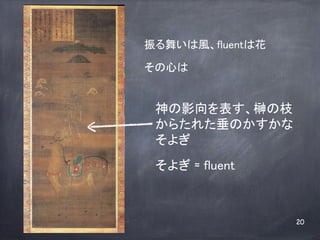 振る舞いは風、fluentは花
その心は
神の影向を表す、榊の枝
からたれた垂のかすかな
そよぎ
そよぎ ≈ fluent
20